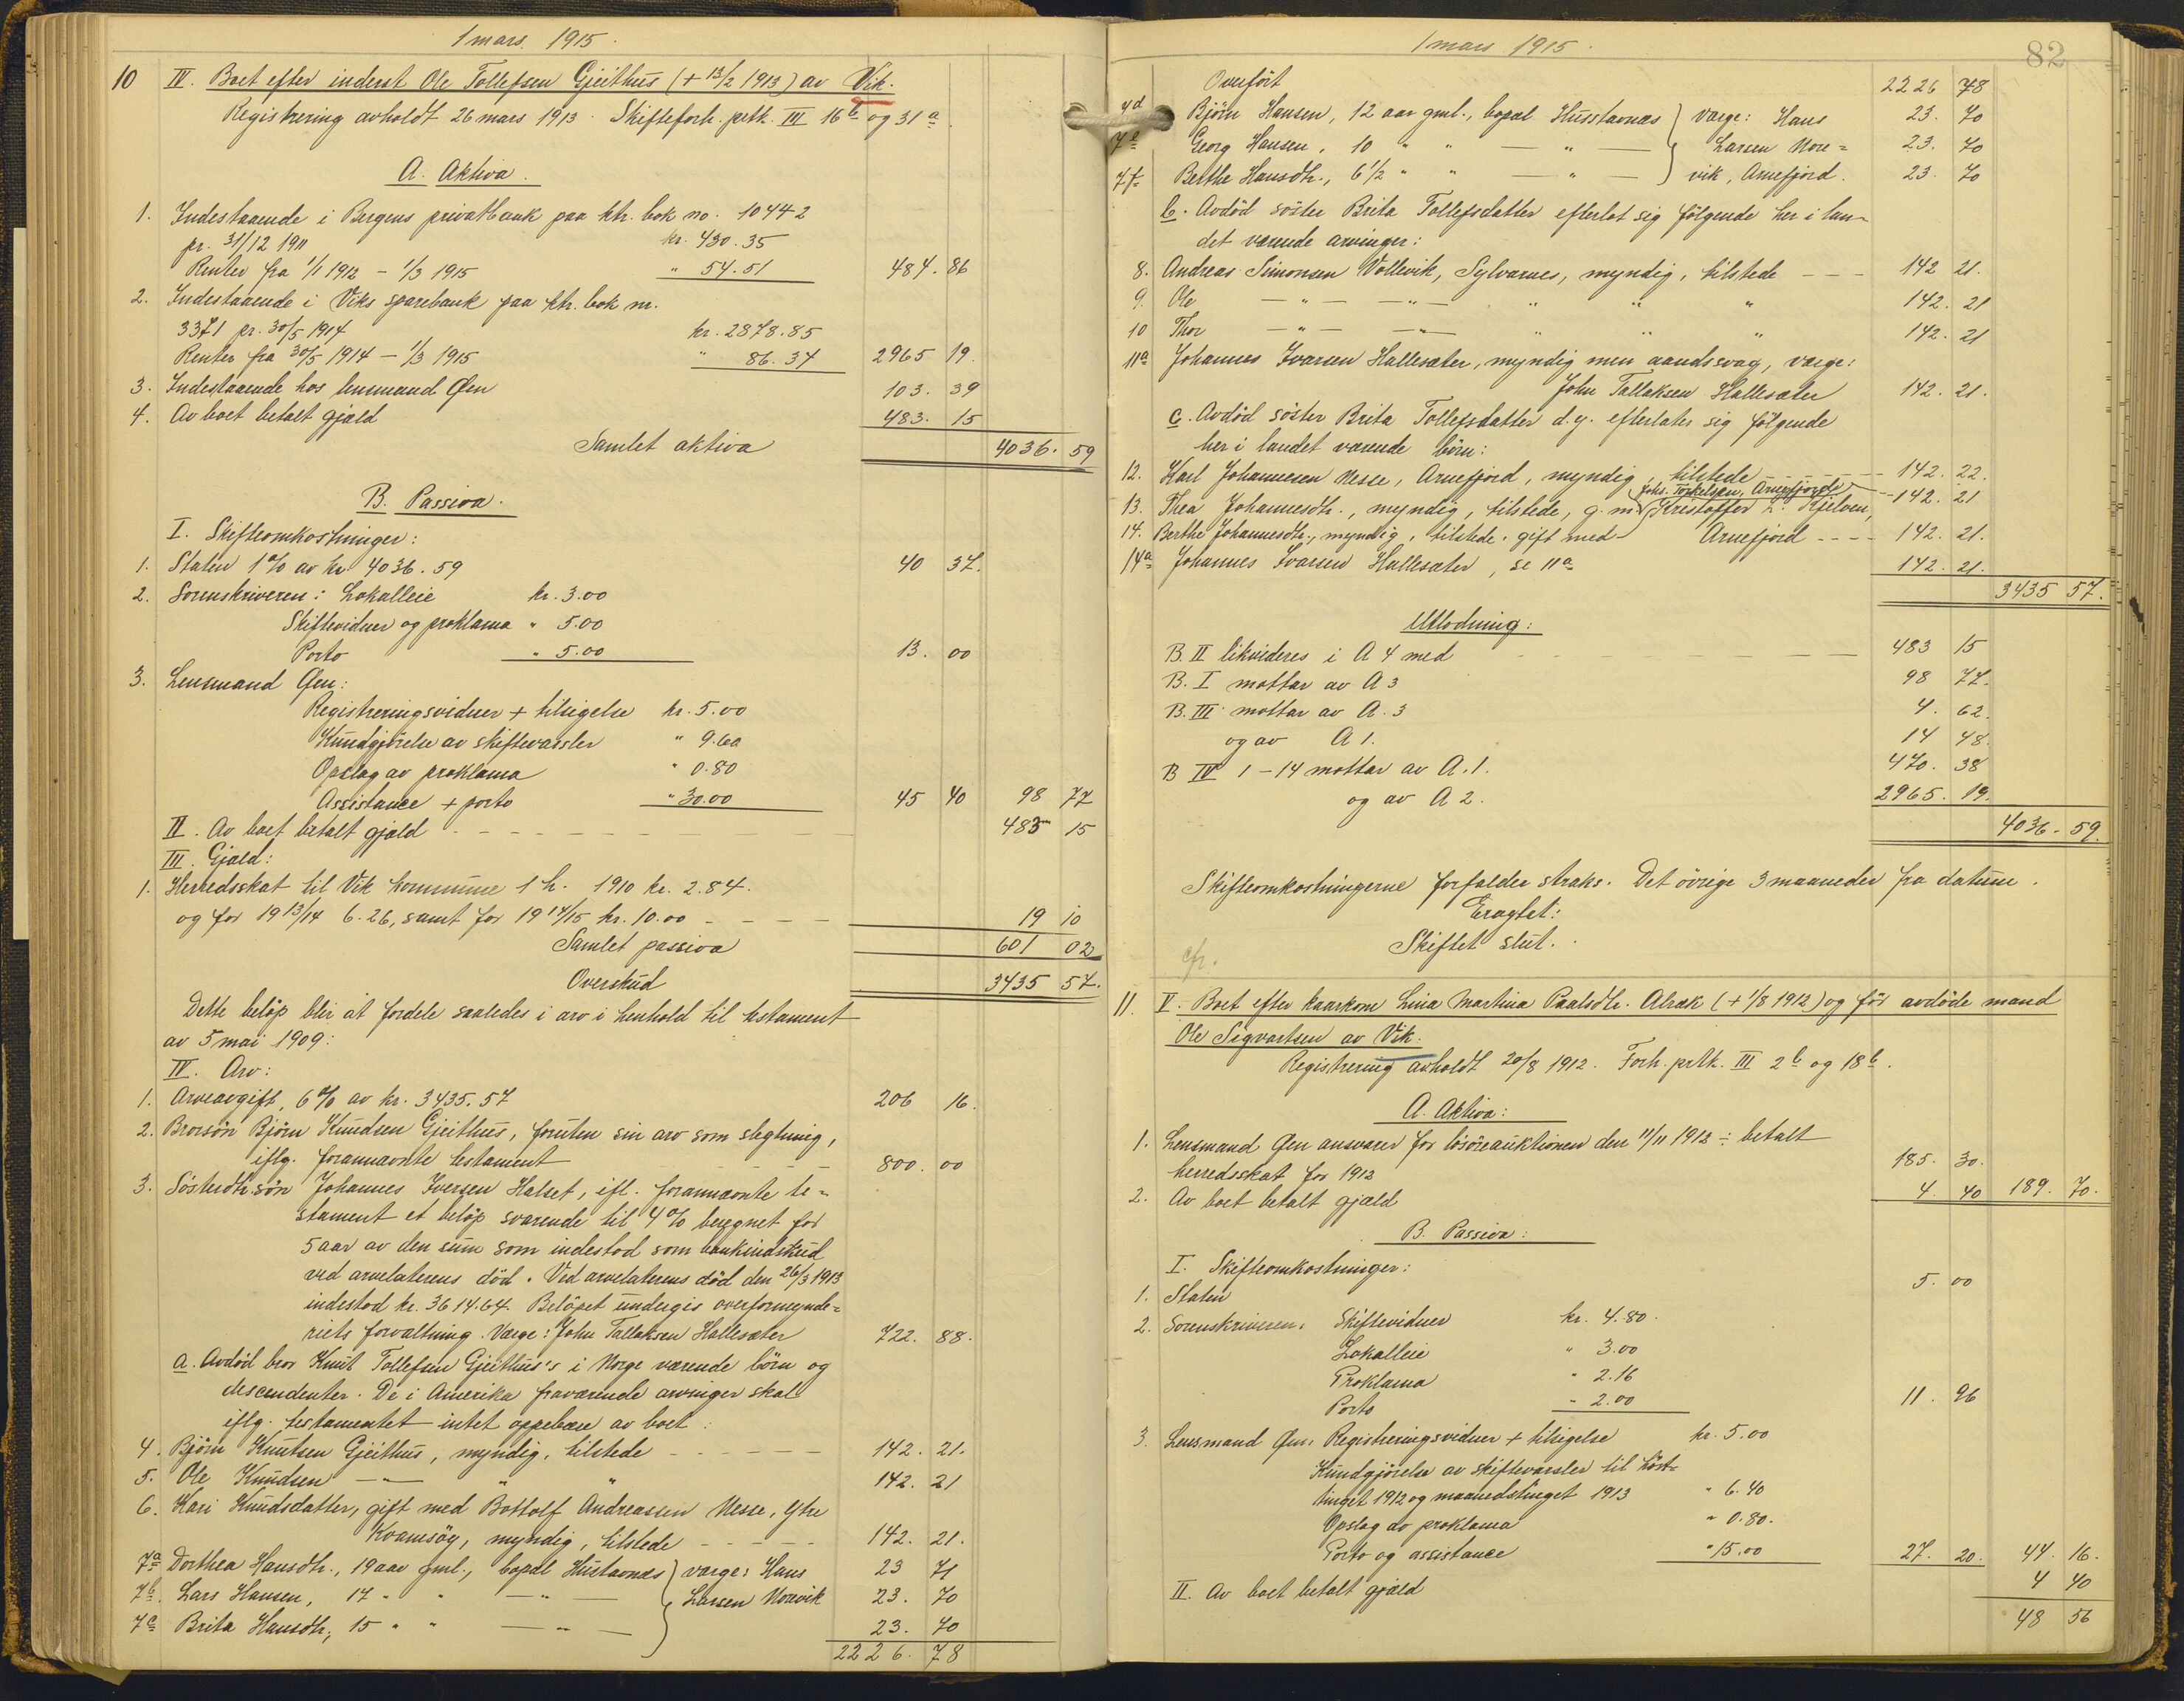 1 mars 1915.
10 IV. Boet efter inderst Ole Tollefsen Gjeithus (+ 13/2 1913) av Vik.
Registrering avholdt 26 mars 1913. Skifteforh. prtk. III 16b og 31a.
A. Aktiva.
1. Indestaaende i Bergens privatbank paa ktr. bok no. 10442
pr. 31/12 1911 kr. 430.35
Renter fra 1/1 1912 - 1/3 1915 " 54.51 484.86
2. Indestaaende i Viks sparebank paa ktr. bok nr.
3371 pr. 30/5 1914 kr. 2878.85
Renter fra 30/5 1914 - 1/3 1915 " 86.34 2965 19.
3. Indestaaende hos lensmand Øen 103.39
4. Av boet betalt gjæld 483.15
Samlet aktiva 4036.59
B. Passiva.
I. Skifteomkostninger:
1. Staten 1% av kr. 4036.59 40 37.
2. Sorenskriveren: Lokalleie kr. 3.00
Skiftevidner og proklama " 5.00
Porto " 5.00 13.00
3. Lensmand Øen:
Registreringsvidner + tilsigelse kr. 5.00
Kundgjörelse av skiftevarsler " 9.60
Opslag av proklama " 0.80
Assistance + porto " 30.00 45 40 98 77
II. Av boet betalt gjæld - - - 483 15
III. Gjæld:
1. Herredsskat til Vik kommune 1 h. 1910 kr. 2.84.
og for 1913/14 6.26, samt for 1914/15 kr. 10.00 - - - - 19 10
Samlet passiva 601 02
Overskud 3435 57.
Dette belöp blir at fordele saaledes i arv i henhold til testament
av 5 mai 1909:
IV. Arv:
1. Arveavgift, 6% av kr. 3435.57 206 16.
2. Brorsön Björn Knudsen Gjeithus, foruten sin arv som slegtning,
iflg. forannævnte testament 800.00
3. Sösterdtr.sön Johannes Iversen Halset, ifl. forannævnte te=
stament et belöp svarende til 4% beregnet for
5 aar av den sum som indestod som bankindskud
ved arvelaterens död. Ved arvelaterens död den 26/3 1913
indestod kr. 3614.64. Belöpet undergis overformynde=
riets forvaltning. Værge: John Tallaksen Hallesæter 722.88.
a. Avdöd bror Knut Tollefsen Gjeithus's i Norge værende börn og
descendenter. De i Amerika fraværende arvinger skal
iflg. testamentet intet oppebære av boet:
4. Björn Knutsen Gjeithus, myndig, tilstede - - - 142.21.
5. Ole Knudsen - " - " " 142.21
6. Kari Knudsdatter, gift med Bottolf Andreassen Nesse, Ytre
Kvamsöy, myndig, tilstede - - - - - 142.21.
7a Dorthea Hansdtr., 19 aar gml., bopæl Hustavnæs } værge: Hans 23 71
7b. Lars Hansen, 17 " " - " - Larsen Norevik 23.70
7c Brita Hansdtr., 15 " " - " - 23.70
2226.78
1 mars 1915.
82
Overfört 2226 78
7d Björn Hansen, 12 aar gml., bopæl Husstavnæs } værge: Hans 23.70
7e Georg Hansen, 10 " " - " - Larsen Nore= 23.70
7f Berthe Hansdtr., 6 1/2 " " - " - vik, Arnefjord. 23.70
b. Avdöd söster Brita Tollefsdatter efterlot sig fölgende her i lan=
det værende arvinger:
8. Andreas Simonsen Vollevik, Sylvarnes, myndig, tilstede - - - 142 21.
9. Ole - " - - " - " " " 142.21
10 Thor - " - - " - " " " 142.21
11a Johannes Ivarsen Hallesæter, myndig men aandssvag, værge:
John Tallaksen Hallesæter 142.21.
c. Avdöd söster Brita Tollefsdatter d.y. efterlater sig fölgende
her i landet værende börn:
12. Karl Johannesen Nesse, Arnefjord, myndig, tilstede - - - 142.22.
Johs. Torkelsen, Arnefjorde
13. Thea Johannesdtr., myndig, tilstede, g. m. Kristoffer L. Kjelven, 142.21
14. Berthe Johannesdtr., myndig, tilstede, gift med Arnefjord - - - - 142.21.
14a Johannes Ivarsen Hallesæter, se 11a 142.21.
3435 57.
Utlodning:
B. II likvideres i A 4 med - - - 483 15
B. I mottar av A 3 98 77.
B. III mottar av A. 3 4.62.
og av A 1. 14 48.
B IV 1-14 mottar av A.1. 470.38
og av A 2. 2965.19.
4036.59.
Skifteomkostningerne forfalder straks. Det övrige 3 maaneder fra datum.
Eragtet:
Skiftet slut.
cfr.
11. V. Boet efter kaarkone Lina Martina Paalsdtr. Alræk (+ 1/8 1912) og för avdöde mand
Ole Sigvartsen av Vik.
Registrering avholdt 20/8 1912. Forh. prtk. III 2b og 18b.
A. Aktiva:
1. Lensmand Øen ansvarer for lösöreauktionen den 11/11 1912 ÷ betalt
herredsskat for 1912 185.30.
2. Av boet betalt gjæld 4.40 189.70.
B. Passiva:
I. Skifteomkostninger:
1. Staten 5.00
2. Sorenskriveren: Skiftevidner kr. 4.80.
Lokalleie " 3.00
Proklama " 2.16
Porto " 2.00 11.96
3. Lensmand Øen: Registreringsvidner + tilsigelse kr. 5.00
Kundgjörelse av skiftevarsler til höst=
tinget 1912 og maanedstinget 1913 " 6.40
Opslag av proklama " 0.80.
Porto og assistance " 15.00 27.20. 44.16.
II. Av boet betalt gjæld 4 40
48 56